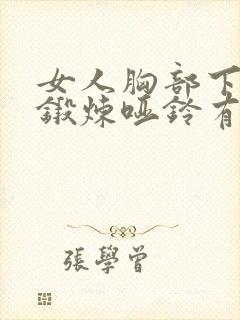 女人胸部下
鍛煉哑鈴有
張學曾